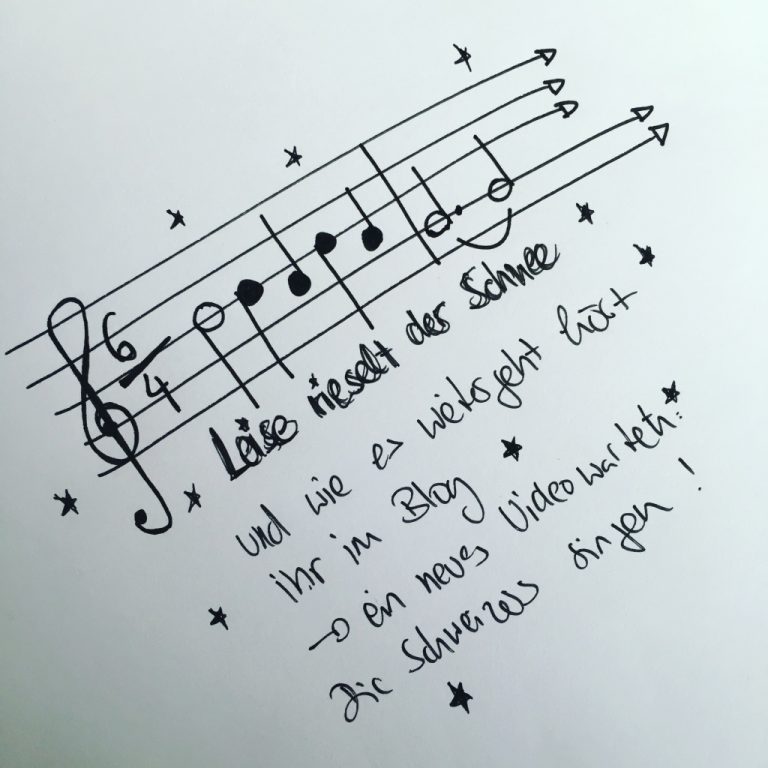 6/4
Leise rieselt der Schnee
und wie es weitergeht hört
ihr im Blog
→ ein neues Video wartet:
Die Schweizers singen!